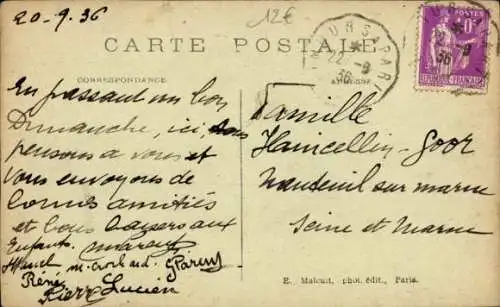 20-9.36
12€
CARTE POSTALE
CORRESPONDANCE
En passant un bon
Dimanche, ici, nous
pensons a vous et
vous envoyons de
bonnes amitiés
et bons baisers aux
Enfants.
Marcel
G Parny
René
Pierre Lucien
POSTES
RÉPUBLIQUE FRANÇAISE
22 -9
36
Famille
Hancellin-Goor
Nanteuil sur marne
Seine et Marne
E. Malcuit, phot. édit., Paris.